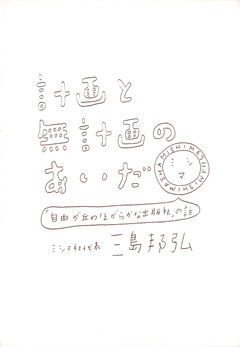 計画と
無計画の
あいだ
MISHIMASHA MISHIMASHA MISHIMASHA
ミシマ
「自由が丘のほがらかな出版社」の話
ミシマ社代表 三島邦弘